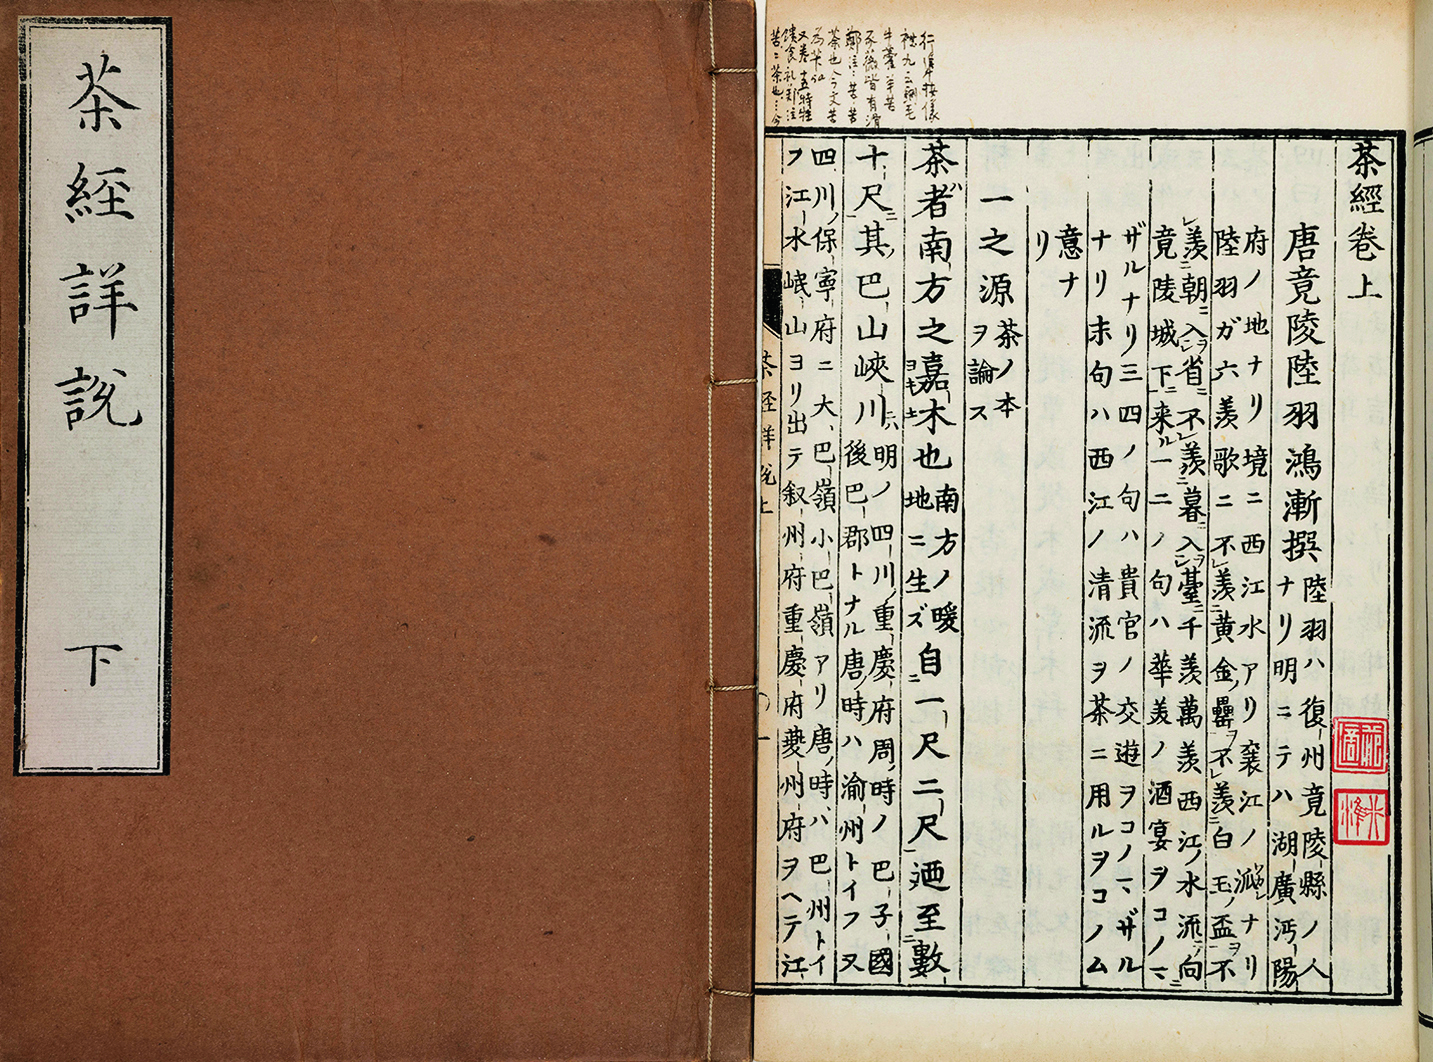 茶經詳說 下
茶經卷上
唐竟陵陸羽鴻漸撰
陸羽ハ復州竟陵縣ノ人
ナリ明ニテハ湖廣沔陽
府ノ地ナリ境ニ西江水アリ襄江ノ派ナリ
陸羽ガ六羨歌ニ不羨黃金罍不羨白玉盃不
羨朝入省不羨暮入臺千羨萬羨西江水流向
竟陵城下来一二ノ句ハ華美ノ酒宴ヲコノマ
ザルナリ三四ノ句ハ貴官ノ交遊ヲコノマザル
ナリ末句ハ西江ノ清流ヲ茶ニ用ルヲコノム
意ナ
リ
一之源
茶ノ本
ヲ論ス
茶者南方之嘉木也
南方ノ暖
地ニ生ズ
自一尺二尺迺至數
十尺其巴山峽川
明ノ四川重慶府周時ノ巴子國
後巴郡トナル唐ノ時ハ渝州トイフ又
四川保寧府ニ大巴嶺小巴嶺アリ唐ノ時ハ巴州トイ
フ江水岷山ヨリ出テ叙州府重慶府夔州府ヲヘテ江
茶經詳說上